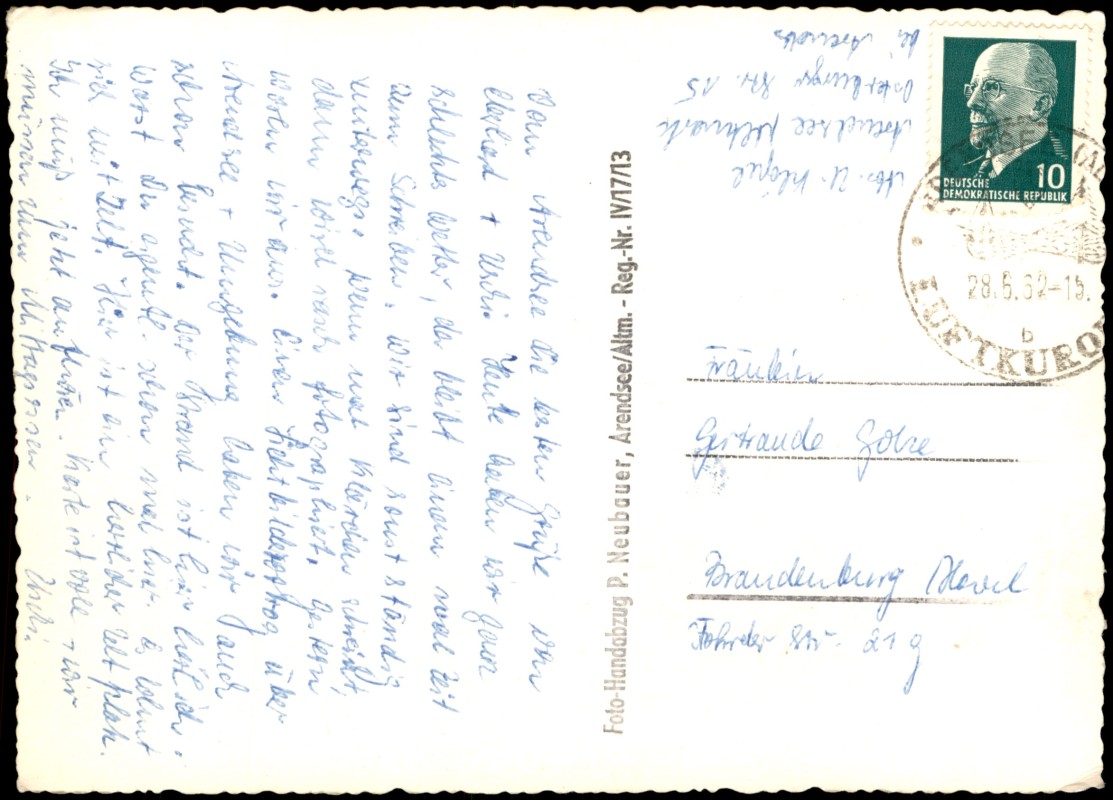 Vom Arendsee die besten Grüße von
Uschi. Heute haben wir ganz
schlechtes Wetter, da bleibt einem mal Zeit
zum Schreiben. Wir sind sonst ständig
unterwegs, wenn mal Klärchen scheint,
dann wird rasch fotographiert. Gestern
waren wir aus. Einen Lichtbildervortrag über
Arendsee + Umgebung haben wir auch
schon besucht. Der Strand ist hier herrlich.
Warst Du eigentl. schon mal hier. Es lohnt
sich mit Zelt. Hier ist ein herrlicher Zeltplatz.
Ich muß jetzt aufhören. Karte ist voll + wir
müssen zum Mittagessen. Uschi.
Foto-Handabzug P. Neubauer, Arendsee/Altm. - Reg.-Nr. IV/17/13
Abs. U.
Arendsee Altmark
Osterburger Str. 15
bei
DEUTSCHE
DEMOKRATISCHE REPUBLIK
10
28.6.62-15.
b
LUFTKURO
Fräulein
Gertraude Golze
Brandenburg Havel
Str. 21 g